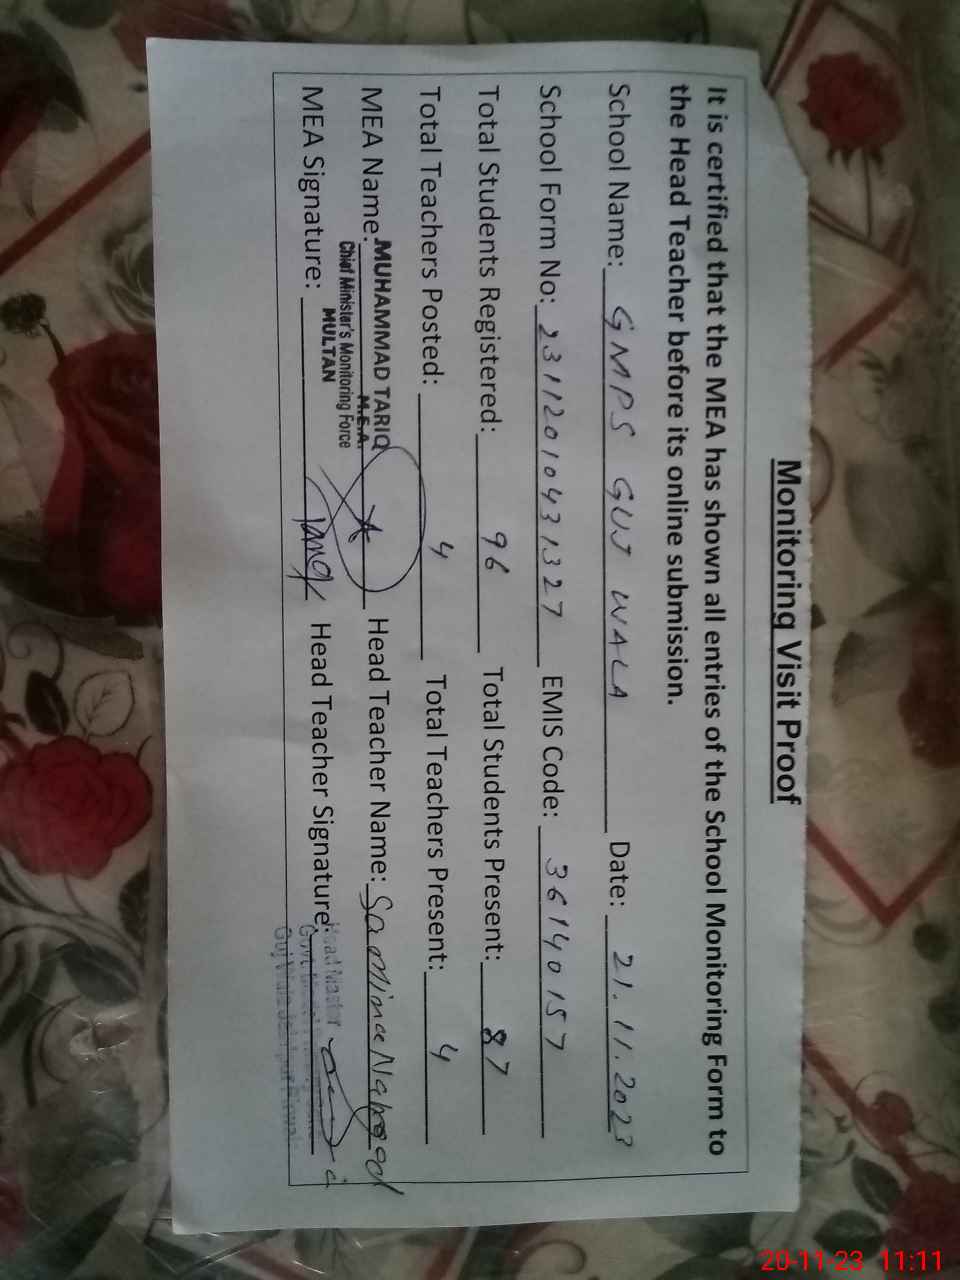 Monitoring Visit Proof
It is certified that the MEA has shown all entries of the School Monitoring Form to
the Head Teacher before its online submission.
School Name: GMPS GUJ WALA Date: 21.11.2023
School Form No: 23112010431327 EMIS Code: 36140157
Total Students Registered: 96 Total Students Present: 87
Total Teachers Posted: 4 Total Teachers Present: 4
MEA Name: MUHAMMAD TARIQ Head Teacher Name:
M.E.A.
Chief Minister's Monitoring Force
MULTAN
MEA Signature: Head Teacher Signature:
Head Master
20-11-23 11:11